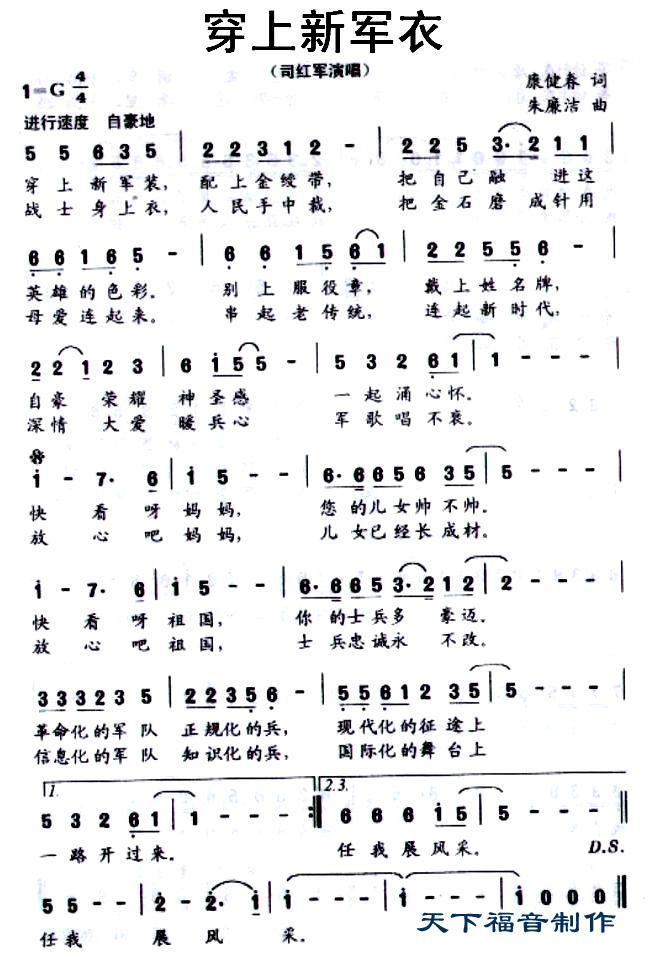 穿上新军衣
（司红军演唱）
1=G 4/4
康健春 词
朱廉洁 曲
进行速度 自豪地
5 5 6 3 5 | 2 2 3 1 2 - | 2 2 5 3· 2 1 1 |
穿上新军装， 配上金绶带， 把自己融 进这
战士身上衣， 人民手中裁， 把金石磨 成针用
6 6 1 6 5 - | 6 6 1 5 6 1 | 2 2 5 5 6 - |
英雄的色彩。 别上服役章， 戴上姓名牌，
母爱连起来。 串起老传统， 连起新时代，
2 2 1 2 3 | 6 1 5 5 - | 5 3 2 6 1 | 1 - - - |
自豪 荣耀 神圣感 一起涌心怀。
深情 大爱 暖兵心 军歌唱不衰。
1 - 7· 6 | 1 5 - - | 6· 6 6 5 6 3 5 | 5 - - - |
快 看 呀妈妈， 您的儿女帅不帅。
放 心 吧妈妈， 儿女已经长成材。
1 - 7· 6 | 1 5 - - | 6· 6 6 5 3· 2 1 2 | 2 - - - |
快 看 呀祖国， 你的士兵多 豪迈。
放 心 吧祖国， 士兵忠诚永 不改。
3 3 3 2 3 5 | 2 2 3 5 6 - | 5 5 6 1 2 3 5 | 5 - - - |
革命化的军队 正规化的兵， 现代化的征途上
信息化的军队 知识化的兵， 国际化的舞台上
1. 2.3.
5 3 2 6 1 | 1 - - - :‖ 6 6 6 1 5 | 5 - - - ‖
一路开过来。 任我展风采。 D.S.
5 5 - - | 2 - 2· 1 | 1 - - - | 1 - - - | 1 0 0 0 ‖
任我 展 风 采。
天下福音制作